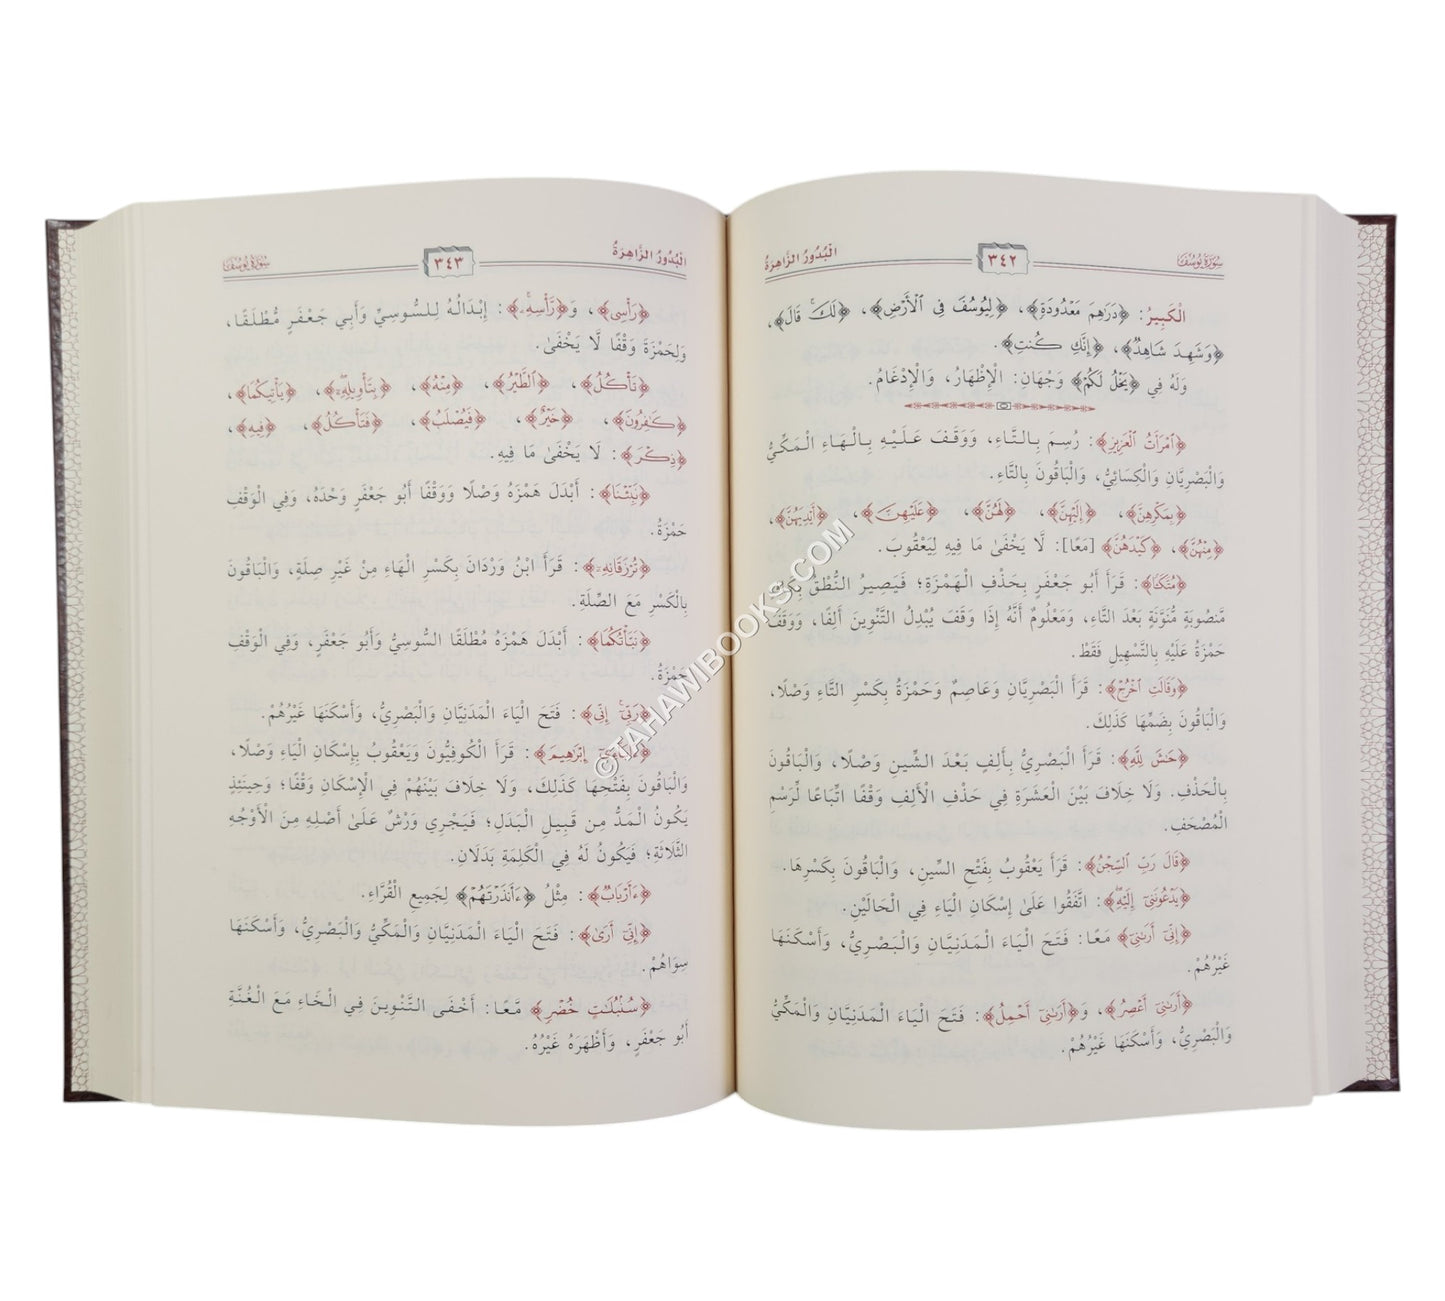 سُورَةُ يُوسُفَ ٣٤٢ الْبُدُورُ الزَّاهِرَةُ
الْكَبِيرُ: ﴿دَرَٰهِمَ مَعْدُودَةٍ﴾، ﴿لِيُوسُفَ فِى ٱلْأَرْضِ﴾، ﴿لَكَ قَالَ﴾،
﴿وَشَهِدَ شَاهِدٌ﴾، ﴿إِنَّكِ كُنتِ﴾.
وَلَهُ فِي ﴿يَخْلُ لَكُمْ﴾ وَجْهَانِ: الْإِظْهَارُ، وَالْإِدْغَامُ.
﴿ٱمْرَأَتُ ٱلْعَزِيزِ﴾: رُسِمَ بِالتَّاءِ، وَوَقَفَ عَلَيْهِ بِالْهَاءِ الْمَكِّيُّ
وَالْبَصْرِيَّانِ وَالْكِسَائِيُّ، وَالْبَاقُونَ بِالتَّاءِ.
﴿بِمَكْرِهِنَّ﴾، ﴿إِلَيْهِنَّ﴾، ﴿لَهُنَّ﴾، ﴿عَلَيْهِنَّ﴾، ﴿أَيْدِيَهُنَّ﴾،
﴿مِنْهُنَّ﴾، ﴿كَيْدَهُنَّ﴾ [مَعًا]: لَا يَخْفَىٰ مَا فِيهِ لِيَعْقُوبَ.
﴿مُتَّكَـًٔا﴾: قَرَأَ أَبُو جَعْفَرٍ بِحَذْفِ الْهَمْزَةِ؛ فَيَصِيرُ النُّطْقُ بِكَافٍ
مَنصُوبَةٍ مُنَوَّنَةٍ بَعْدَ التَّاءِ، وَمَعْلُومٌ أَنَّهُ إِذَا وَقَفَ يُبْدِلُ التَّنْوِينَ أَلِفًا، وَوَقَفَ
حَمْزَةُ عَلَيْهِ بِالتَّسْهِيلِ فَقَطْ.
﴿وَقَالَتِ ٱخْرُجْ﴾: قَرَأَ الْبَصْرِيَّانِ وَعَاصِمٌ وَحَمْزَةُ بِكَسْرِ التَّاءِ وَصْلًا،
وَالْبَاقُونَ بِضَمِّهَا كَذَلِكَ.
﴿حَٰشَ لِلَّهِ﴾: قَرَأَ الْبَصْرِيُّ بِأَلِفٍ بَعْدَ الشِّينِ وَصْلًا، وَالْبَاقُونَ
بِالْحَذْفِ. وَلَا خِلَافَ بَيْنَ الْعَشَرَةِ فِي حَذْفِ الْأَلِفِ وَقْفًا اتِّبَاعًا لِّرَسْمِ
الْمُصْحَفِ.
﴿قَالَ رَبِّ ٱلسِّجْنُ﴾: قَرَأَ يَعْقُوبُ بِفَتْحِ السِّينِ، وَالْبَاقُونَ بِكَسْرِهَا.
﴿يَدْعُونَنِىٓ إِلَيْهِ﴾: اتَّفَقُوا عَلَىٰ إِسْكَانِ الْيَاءِ فِي الْحَالَيْنِ.
﴿إِنِّىٓ أَرَىٰنِىٓ﴾ مَعًا: فَتَحَ الْيَاءَ الْمَدَنِيَّانِ وَالْبَصْرِيُّ، وَأَسْكَنَهَا
غَيْرُهُمْ.
﴿أَرَىٰنِىٓ أَعْصِرُ﴾، وَ﴿أَرَىٰنِىٓ أَحْمِلُ﴾: فَتَحَ الْيَاءَ الْمَدَنِيَّانِ وَالْمَكِّيُّ
وَالْبَصْرِيُّ، وَأَسْكَنَهَا غَيْرُهُمْ.
الْبُدُورُ الزَّاهِرَةُ ٣٤٣ سُورَةُ يُوسُفَ
﴿رَأْسِى﴾، وَ﴿رَّأْسِهِۦ﴾: إِبْدَالُهُ لِلسُّوسِيِّ وَأَبِي جَعْفَرٍ مُّطْلَقًا،
وَلِحَمْزَةَ وَقْفًا لَّا يَخْفَىٰ.
﴿تَأْكُلُ﴾، ﴿ٱلطَّيْرُ﴾، ﴿مِنْهُ﴾، ﴿بِتَأْوِيلِهِۦٓ﴾، ﴿يَأْتِيكُمَا﴾،
﴿كَٰفِرُونَ﴾، ﴿خَيْرٌ﴾، ﴿فَيُصْلَبُ﴾، ﴿فَتَأْكُلُ﴾، ﴿فِيهِ﴾،
﴿ذِكْرَ﴾: لَا يَخْفَىٰ مَا فِيهِ.
﴿نَبِّئْنَا﴾: أَبْدَلَ هَمْزَهُ وَصْلًا وَوَقْفًا أَبُو جَعْفَرٍ وَحْدَهُ، وَفِي الْوَقْفِ
حَمْزَةُ.
﴿تُرْزَقَانِهِۦٓ﴾: قَرَأَ ابْنُ وَرْدَانَ بِكَسْرِ الْهَاءِ مِنْ غَيْرِ صِلَةٍ، وَالْبَاقُونَ
بِالْكَسْرِ مَعَ الصِّلَةِ.
﴿نَبَّأْتُكُمَا﴾: أَبْدَلَ هَمْزَهُ مُطْلَقًا السُّوسِيُّ وَأَبُو جَعْفَرٍ، وَفِي الْوَقْفِ
حَمْزَةُ.
﴿رَبِّىٓ إِنِّى﴾: فَتَحَ الْيَاءَ الْمَدَنِيَّانِ وَالْبَصْرِيُّ، وَأَسْكَنَهَا غَيْرُهُمْ.
﴿ءَابَآءِىٓ إِبْرَٰهِيمَ﴾: قَرَأَ الْكُوفِيُّونَ وَيَعْقُوبُ بِإِسْكَانِ الْيَاءِ وَصْلًا،
وَالْبَاقُونَ بِفَتْحِهَا كَذَلِكَ، وَلَا خِلَافَ بَيْنَهُمْ فِي الْإِسْكَانِ وَقْفًا؛ وَحِينَئِذٍ
يَكُونُ الْمَدُّ مِن قَبِيلِ الْبَدَلِ؛ فَيَجْرِي وَرْشٌ عَلَىٰ أَصْلِهِ مِنَ الْأَوْجُهِ
الثَّلَاثَةِ؛ فَيَكُونُ لَهُ فِي الْكَلِمَةِ بَدَلَانِ.
﴿ءَأَرْبَابٌ﴾: مِثْلُ ﴿ءَأَنذَرْتَهُمْ﴾ لِجَمِيعِ الْقُرَّاءِ.
﴿إِنِّىٓ أَرَىٰ﴾: فَتَحَ الْيَاءَ الْمَدَنِيَّانِ وَالْمَكِّيُّ وَالْبَصْرِيُّ، وَأَسْكَنَهَا
سِوَاهُمْ.
﴿سُنۢبُلَٰتٍ خُضْرٍ﴾ مَّعًا: أَخْفَى التَّنْوِينَ فِي الْخَاءِ مَعَ الْغُنَّةِ
أَبُو جَعْفَرٍ، وَأَظْهَرَهُ غَيْرُهُ.
©TAHAWIBOOKS.COM